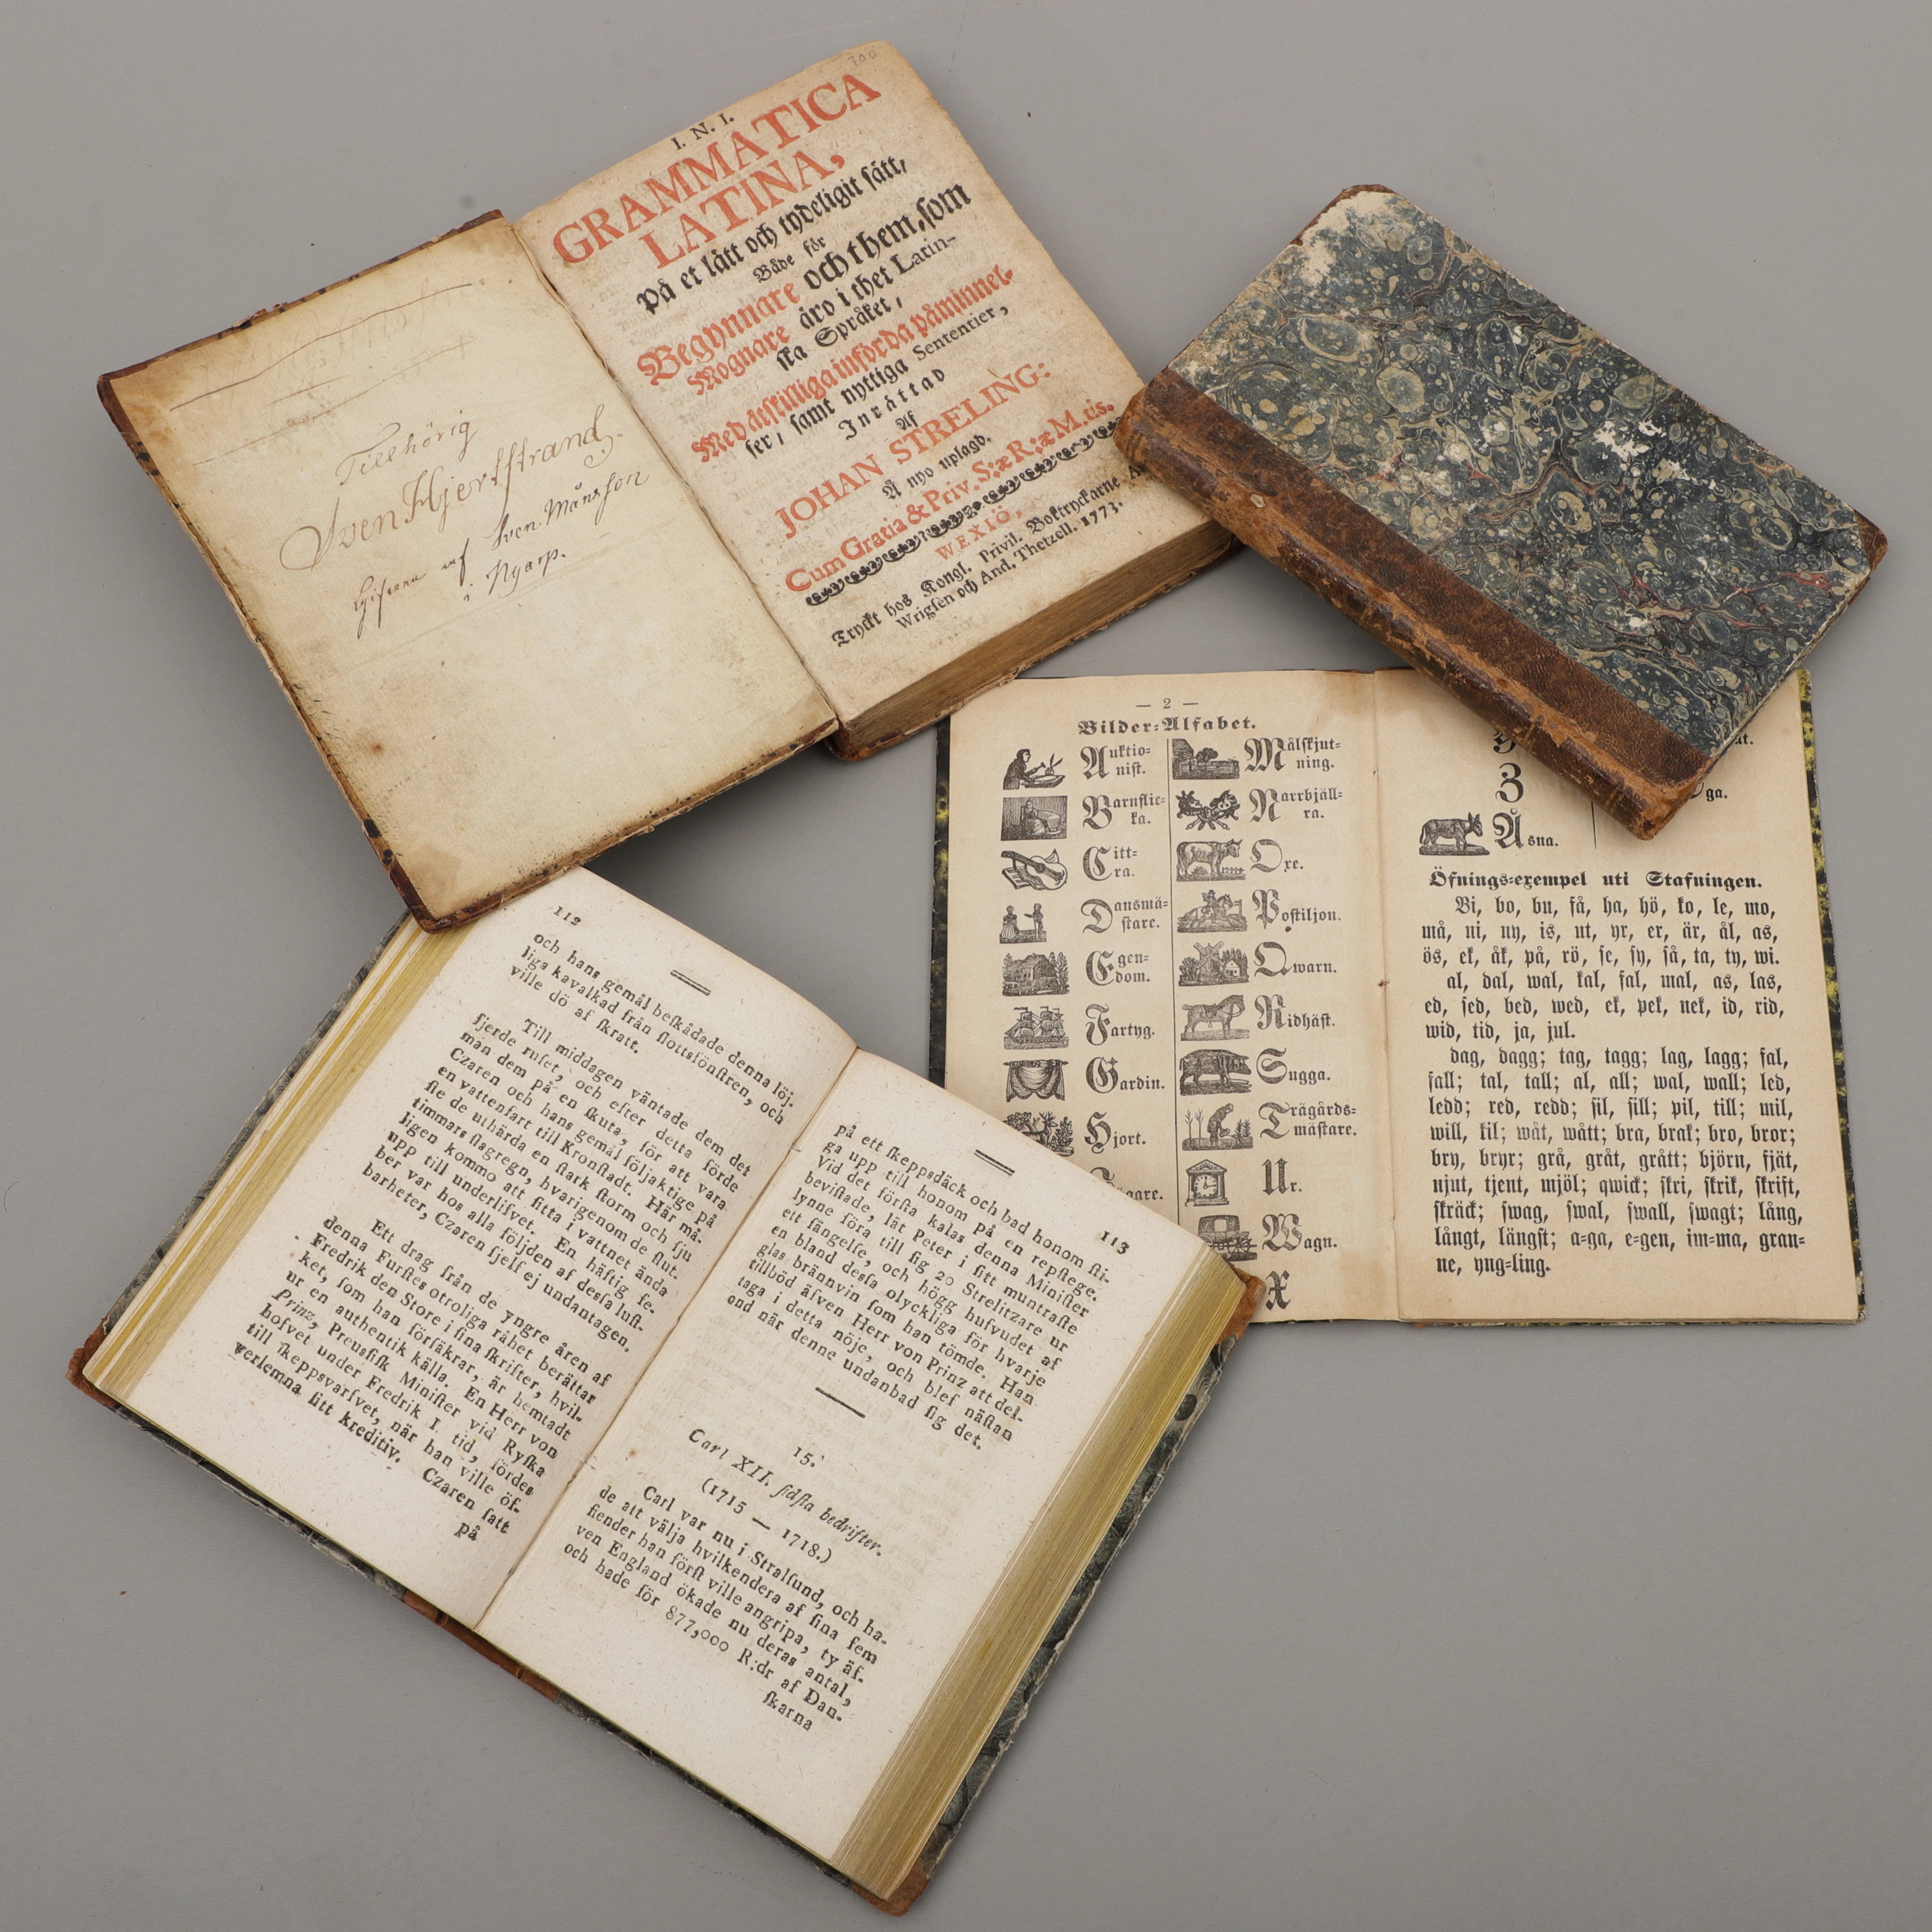 700
I. N. I.
GRAMMATICA
LATINA,
På et lätt och tydeligit sätt,
Både för
Begynnare och them, som
Mognare äro i thet Latin-
ska Språket,
Med åtskilliga införda påminnel-
ser, samt nyttiga Sententier,
Inrättad
Af
JOHAN STRELING:
Å nyo uplagd.
Cum Gratia & Priv. S:æ R:æ M:tis.
WEXIÖ,
Tryckt hos Kongl. Privil. Boktryckarne
Wrigsen och And. Thetzell. 1773.
Tillhörig
Sven Hjertstrand.
af Sven Månsson
i Nyarp.
— 2 —
Bilder-Alfabet.
Auktio-
nist.
Barnflic-
ka.
Citt-
ra.
Dansmä-
stare.
Egen-
dom.
Fartyg.
Gardin.
Hjort.
Jägare.
Målskjut-
ning.
Narrbjäll-
ra.
Oxe.
Postiljon.
Qwarn.
Ridhäst.
Sugga.
Trägårds-
mästare.
Ur.
Wagn.
X
Z
ga.
Åsna.
Öfnings-exempel uti Stafningen.
Bi, bo, bu, få, ha, hö, ko, le, mo,
må, ni, ny, is, ut, yr, er, är, ål, as,
ös, ek, åk, på, rö, se, sy, så, ta, ty, wi.
al, dal, wal, kal, fal, mal, as, las,
ed, sed, bed, wed, ek, pek, nek, id, rid,
wid, tid, ja, jul.
dag, dagg; tag, tagg; lag, lagg; fal,
fall; tal, tall; al, all; wal, wall; led,
ledd; red, redd; sil, sill; pil, till; mil,
will, kil; wåt, wått; bra, brak; bro, bror;
bry, bryr; grå, gråt, grått; björn, fjät,
njut, tjent, mjöl; qwick; skri, skrik, skrift,
skräck; swag, swal, swall, swagt; lång,
långt, längst; a-ga, e-gen, im-ma, gran-
ne, yng-ling.
112
och hans gemål beskådade denna löj-
liga kavalkad från slottsfönstren, och
ville dö af skratt.
Till middagen väntade dem det
fjerde ruset, och efter detta förde
man dem på en skuta, för att vara
Czaren och hans gemål följaktige på
en vattenfart till Kronstadt. Här må-
ste de uthärda en stark storm och sju
timmars slagregn, hvarigenom de slut.
ligen kommo att sitta i vattnet ända
upp till underlifvet. En häftig fe-
ber var hos alla följden af dessa lust-
barheter, Czaren sjelf ej undantagen.
Ett drag från de yngre åren af
denna Furstes otroliga råhet berättar
Fredrik den Store i sina skrifter, hvil-
ket, som han försäkrar, är hemtadt
ur en authentik källa. En Herr von
Prinz, Preussisk Minister vid Ryska
hofvet under Fredrik I. tid, fördes
till skeppsvarfvet, när han ville öf-
verlemna sitt kreditiv. Czaren satt
på
113
på ett skeppsdäck och bad honom sti-
ga upp till honom på en repstege.
Vid det första kalas denna Minister
bevistade, lät Peter i sitt muntraste
lynne föra till sig 20 Strelitzare ur
ett fängelse, och högg hufvudet af
en bland dessa olyckliga för hvarje
glas brännvin som han tömde. Han
tillböd äfven Herr von Prinz att del-
taga i detta nöje, och blef nästan
ond när denne undanbad sig det.
15.
Carl XII. sidsta bedrifter.
(1715 — 1718.)
Carl var nu i Stralsund, och ha-
de att välja hvilkendera af sina fem
fiender han först ville angripa, ty äf-
ven England ökade nu deras antal,
och hade för 877,000 R:dr af Dan-
skarna